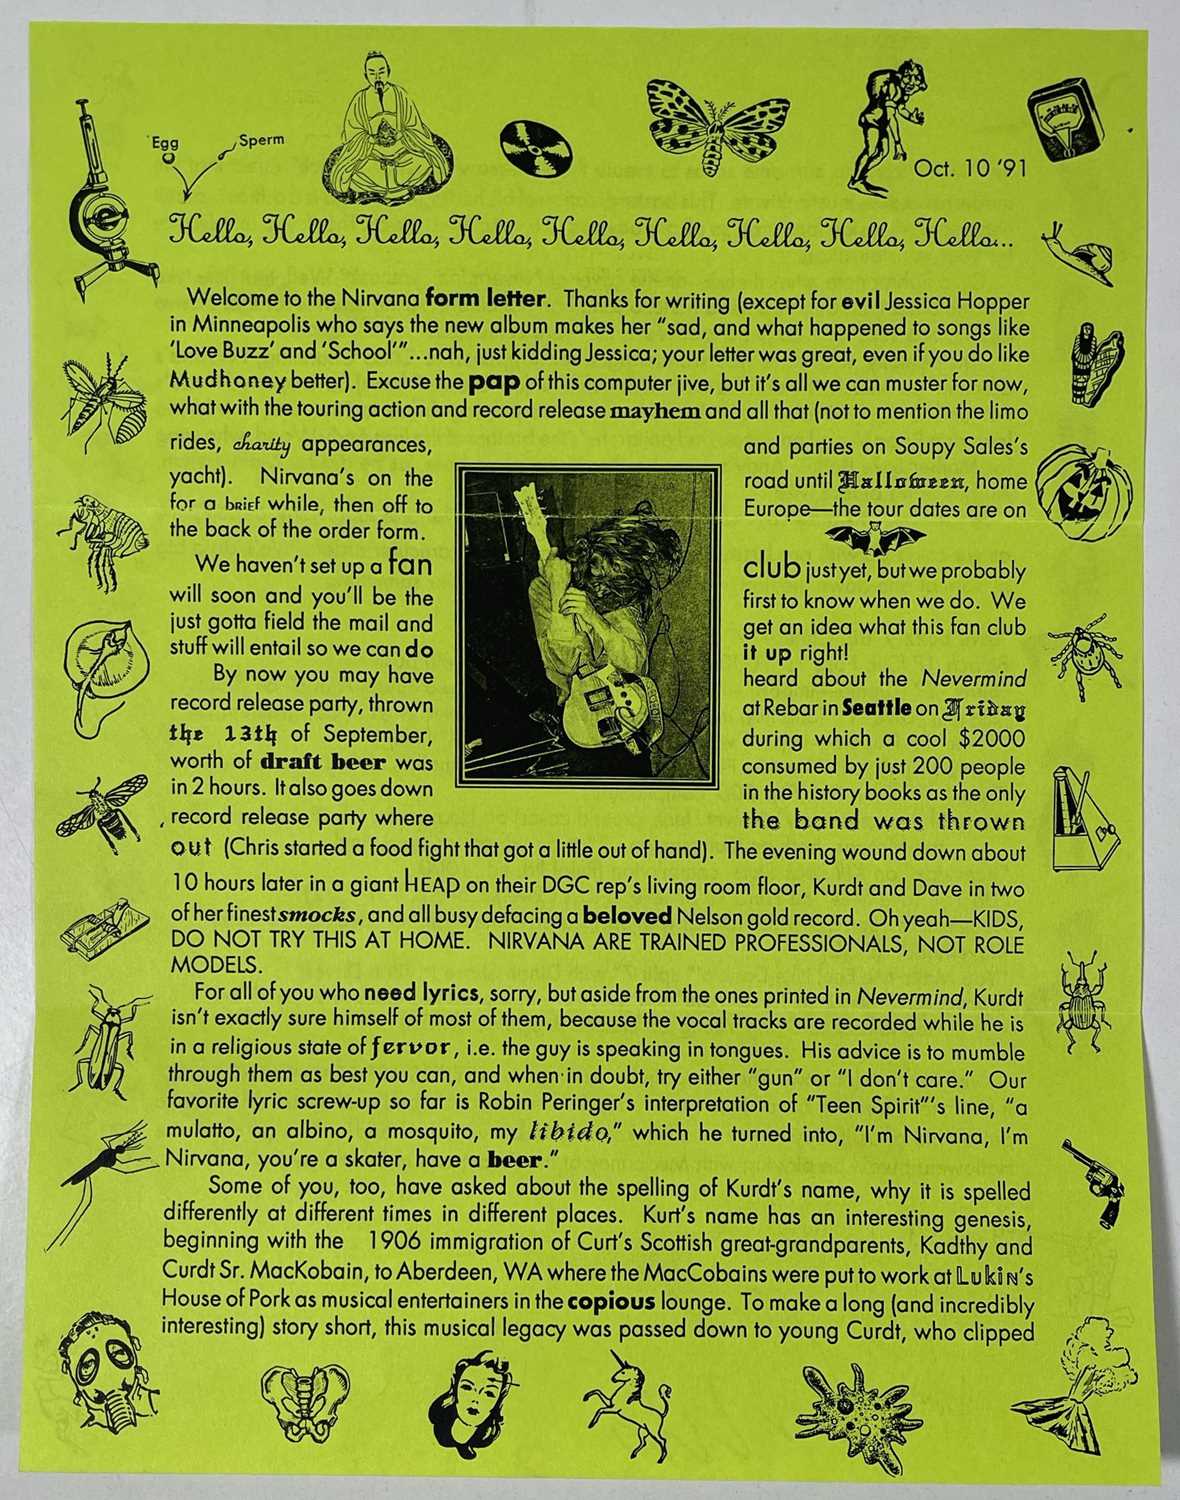 Egg
Sperm
Oct. 10 '91
Hello, Hello, Hello, Hello, Hello, Hello, Hello, Hello, Hello...
Welcome to the Nirvana form letter. Thanks for writing (except for evil Jessica Hopper
in Minneapolis who says the new album makes her "sad, and what happened to songs like
'Love Buzz' and 'School'"...nah, just kidding Jessica; your letter was great, even if you do like
Mudhoney better). Excuse the pap of this computer jive, but it's all we can muster for now,
what with the touring action and record release mayhem and all that (not to mention the limo
rides, charity appearances, and parties on Soupy Sales's
yacht). Nirvana's on the road until Halloween, home
for a BRIEF while, then off to Europe—the tour dates are on
the back of the order form.
We haven't set up a fan club just yet, but we probably
will soon and you'll be the first to know when we do. We
just gotta field the mail and get an idea what this fan club
stuff will entail so we can do it up right!
By now you may have heard about the Nevermind
record release party, thrown at Rebar in Seattle on Friday
the 13th of September, during which a cool $2000
worth of draft beer was consumed by just 200 people
in 2 hours. It also goes down in the history books as the only
record release party where the band was thrown
out (Chris started a food fight that got a little out of hand). The evening wound down about
10 hours later in a giant HEAP on their DGC rep's living room floor, Kurdt and Dave in two
of her finest smocks, and all busy defacing a beloved Nelson gold record. Oh yeah—KIDS,
DO NOT TRY THIS AT HOME. NIRVANA ARE TRAINED PROFESSIONALS, NOT ROLE
MODELS.
For all of you who need lyrics, sorry, but aside from the ones printed in Nevermind, Kurdt
isn't exactly sure himself of most of them, because the vocal tracks are recorded while he is
in a religious state of fervor, i.e. the guy is speaking in tongues. His advice is to mumble
through them as best you can, and when in doubt, try either "gun" or "I don't care." Our
favorite lyric screw-up so far is Robin Peringer's interpretation of "Teen Spirit"'s line, "a
mulatto, an albino, a mosquito, my libido," which he turned into, "I'm Nirvana, I'm
Nirvana, you're a skater, have a beer."
Some of you, too, have asked about the spelling of Kurdt's name, why it is spelled
differently at different times in different places. Kurt's name has an interesting genesis,
beginning with the 1906 immigration of Curt's Scottish great-grandparents, Kadthy and
Curdt Sr. MacKobain, to Aberdeen, WA where the MacCobains were put to work at Lukin's
House of Pork as musical entertainers in the copious lounge. To make a long (and incredibly
interesting) story short, this musical legacy was passed down to young Curdt, who clipped